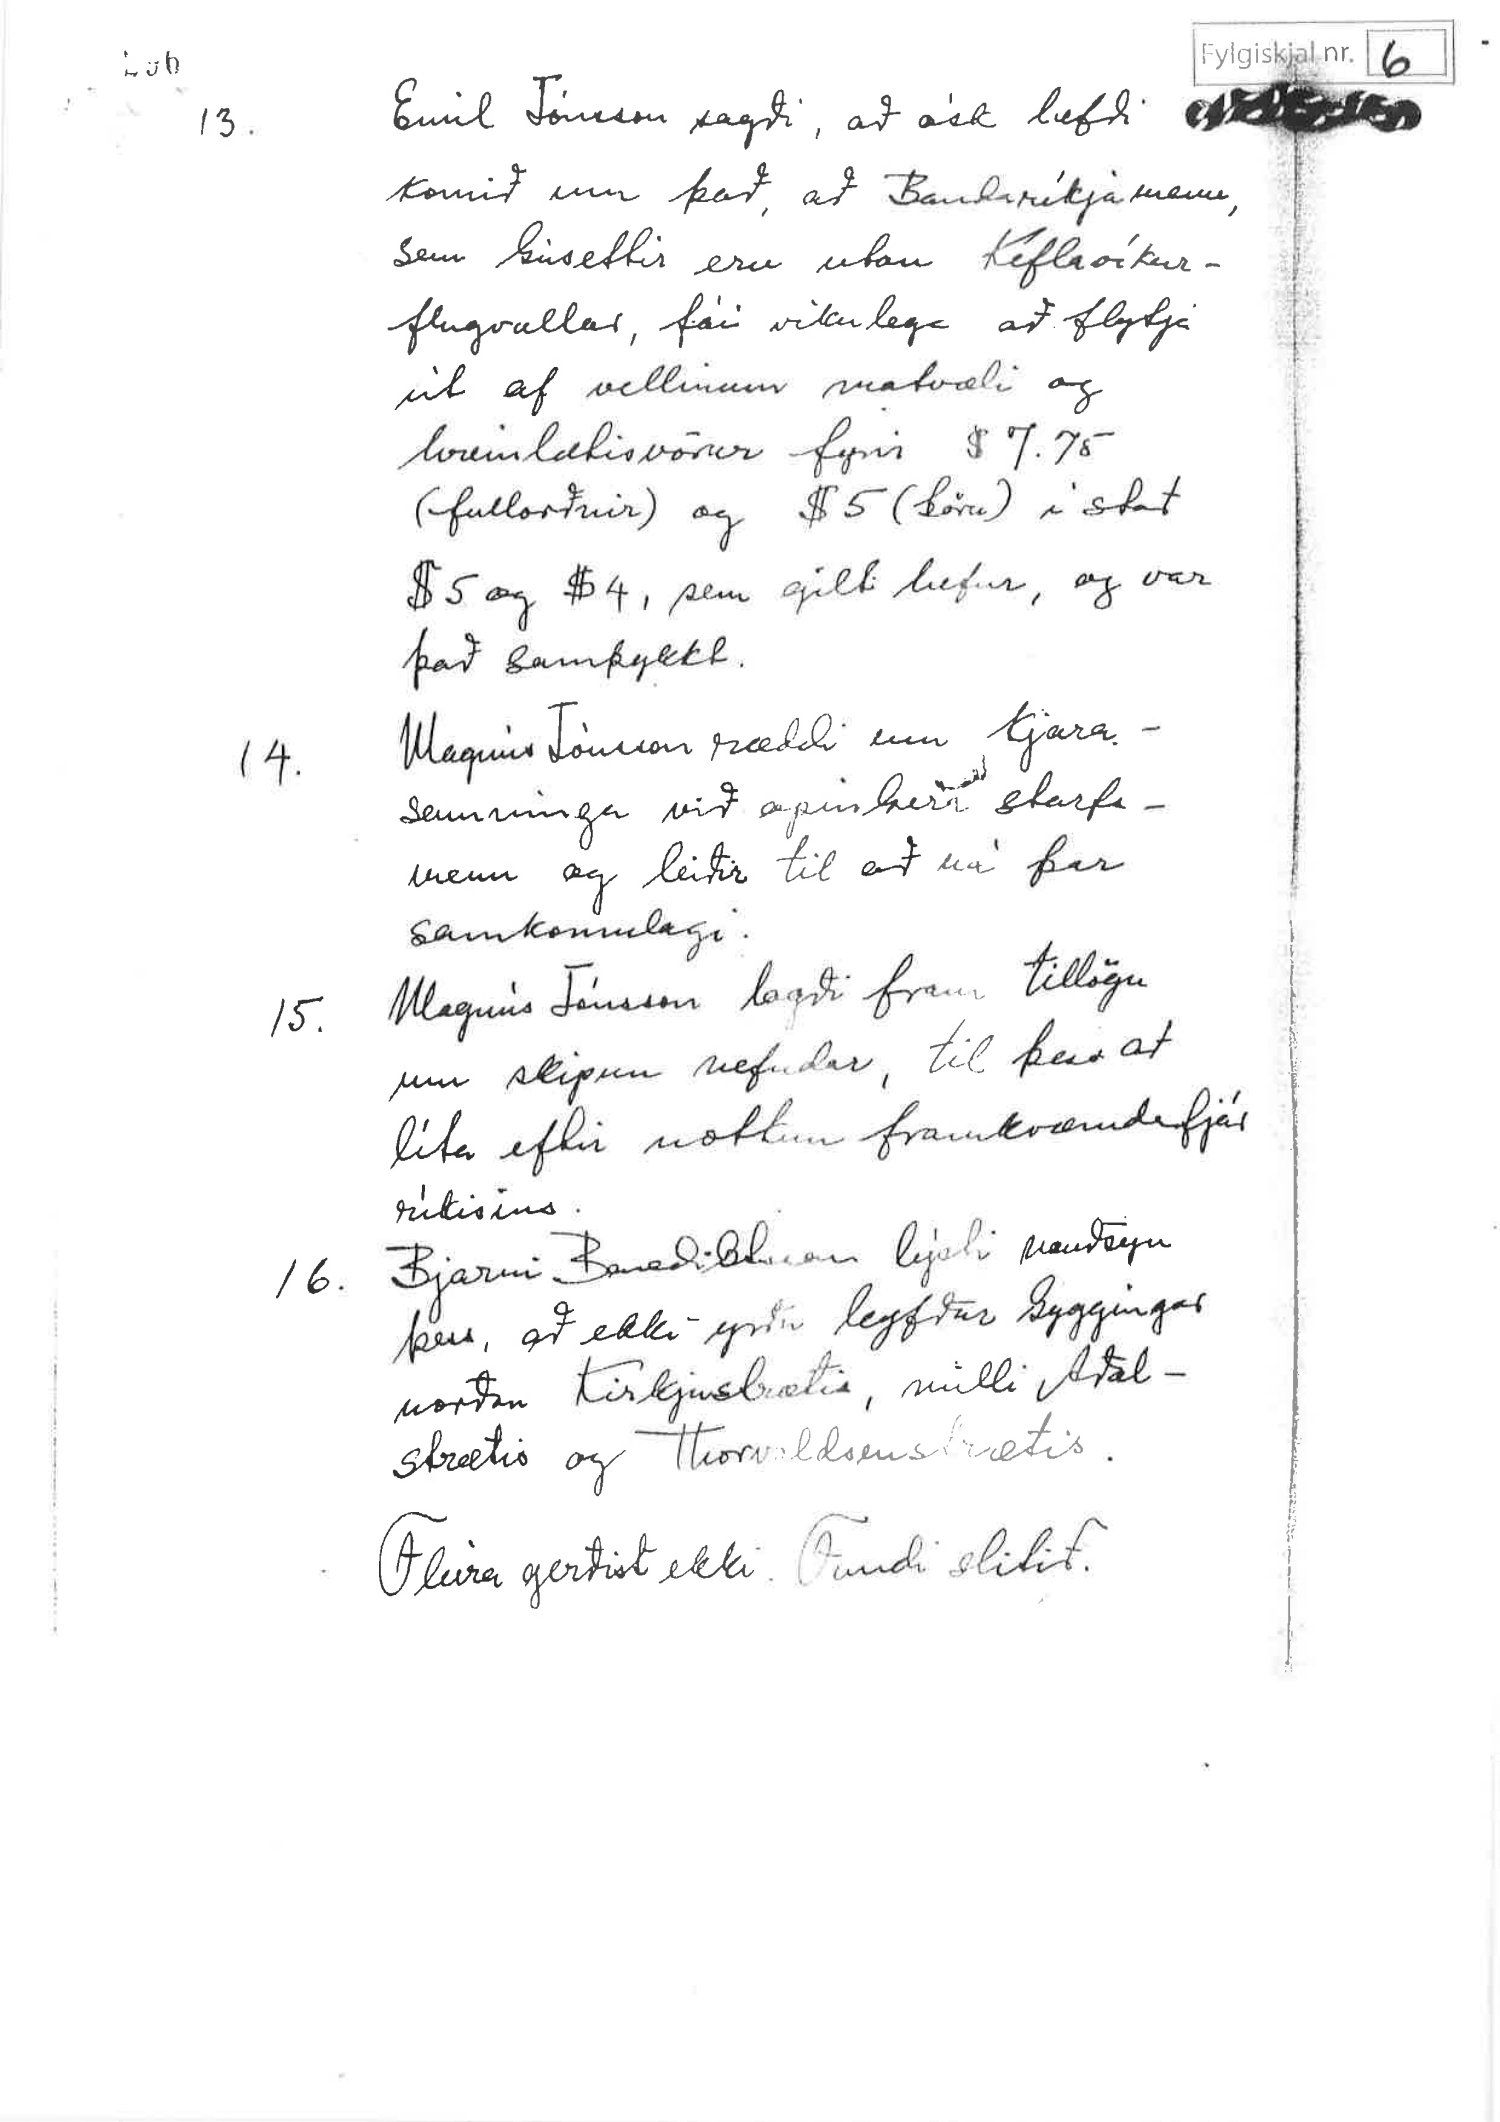 Fylgiskjal nr. 6
13. Emil Jónsson sagði, að ósk hefði
komið um það, að Bandaríkjamenn,
sem búsettir eru utan Keflavíkur-
flugvallar, fái vikulega að flytja
út af vellinum matvæli og
hreinlætisvörur fyrir $ 7.75
(fullorðnir) og $ 5 (börn) í stað
$ 5 og $ 4, sem gilt hefur, og var
það samþykkt.
14. Magnús Jónsson ræddi um kjara-
samninga við opinbera starfs-
menn og leiðir til að ná þar
samkomulagi.
15. Magnús Jónsson lagði fram tillögu
um skipun nefndar, til þess að
líta eftir notkun framkvæmdafjár
ríkisins.
16. Bjarni Benediktsson lýsti nauðsyn
þess, að ekki yrðu leyfðar byggingar
norðan Kirkjustrætis, milli Aðal-
strætis og Thorvaldsenstrætis.
Fleira gerðist ekki. Fundi slitið.